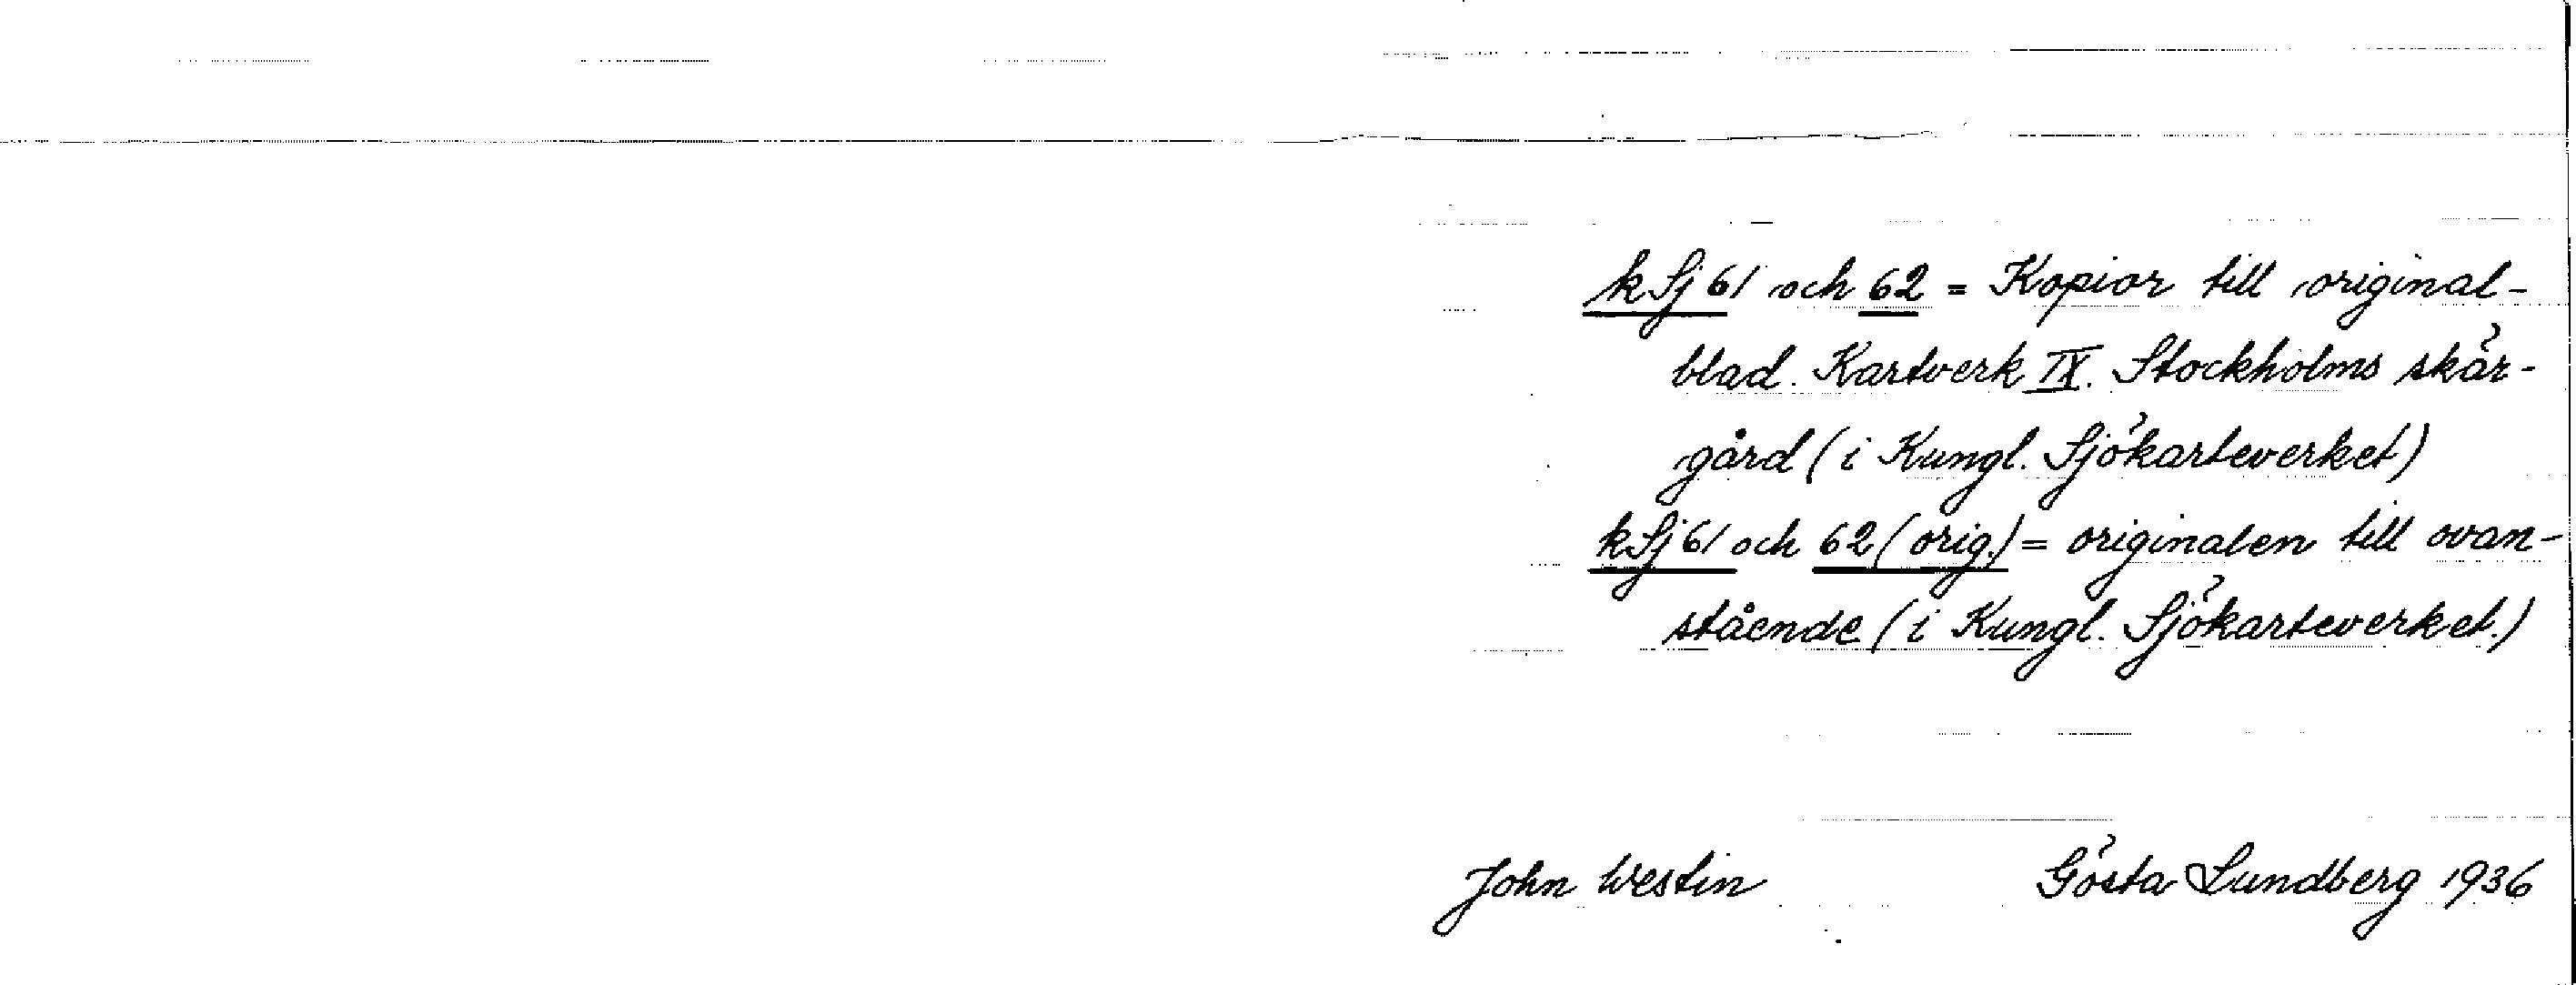 kSj 61 och 62 = Kopior till original-
blad. Kartverk IX. Stockholms skär-
gård (i Kungl. Sjökarteverket)
kSj 61 och 62 (orig.) = originalen till ovan-
stående (i Kungl. Sjökarteverket.)
John Westin Gösta Lundberg 1936